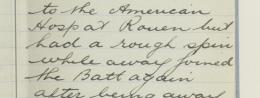 to the American
Hosp at Rouen but
had a rough spin
while away joined
the Batt again
after being away